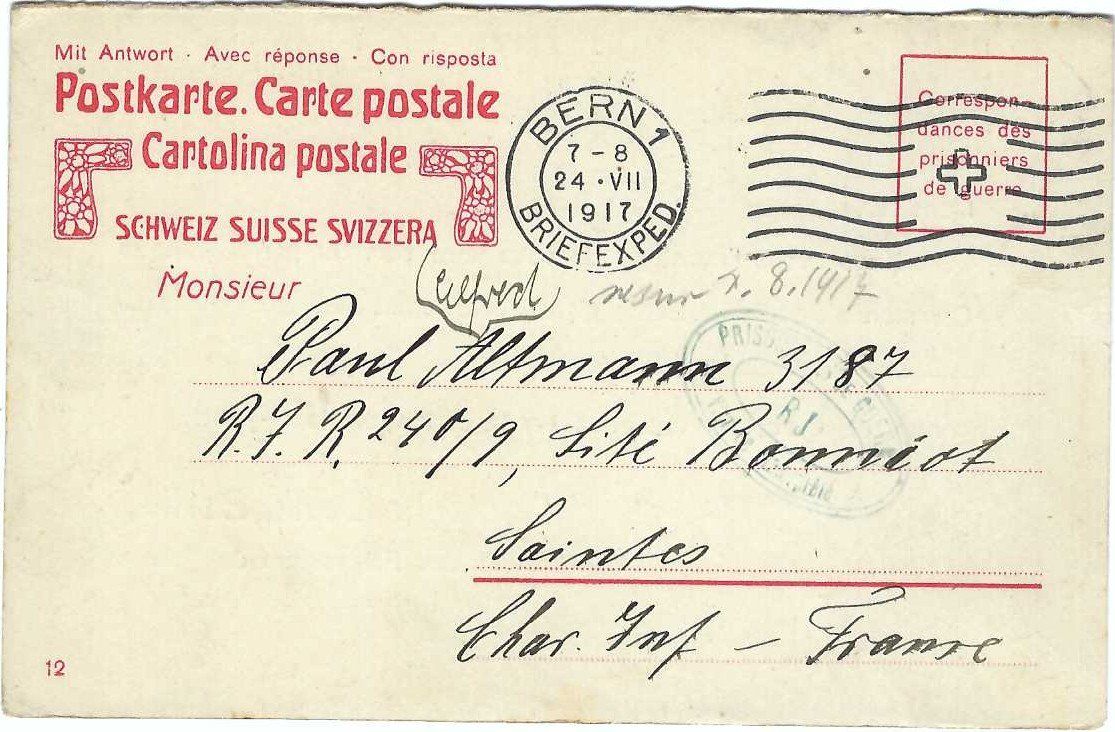 Mit Antwort · Avec réponse · Con risposta
Postkarte. Carte postale
Cartolina postale
SCHWEIZ SUISSE SVIZZERA
BERN 1
7-8
24·VII
1917
BRIEFEXPED.
Correspon-
dances des
prisonniers
de guerre
Monsieur
(Alfred)
8.1917
Paul Altmann 3187
R.J.R. 240/9, Sité Bonniot
Saintes
Char. Inf - France
12